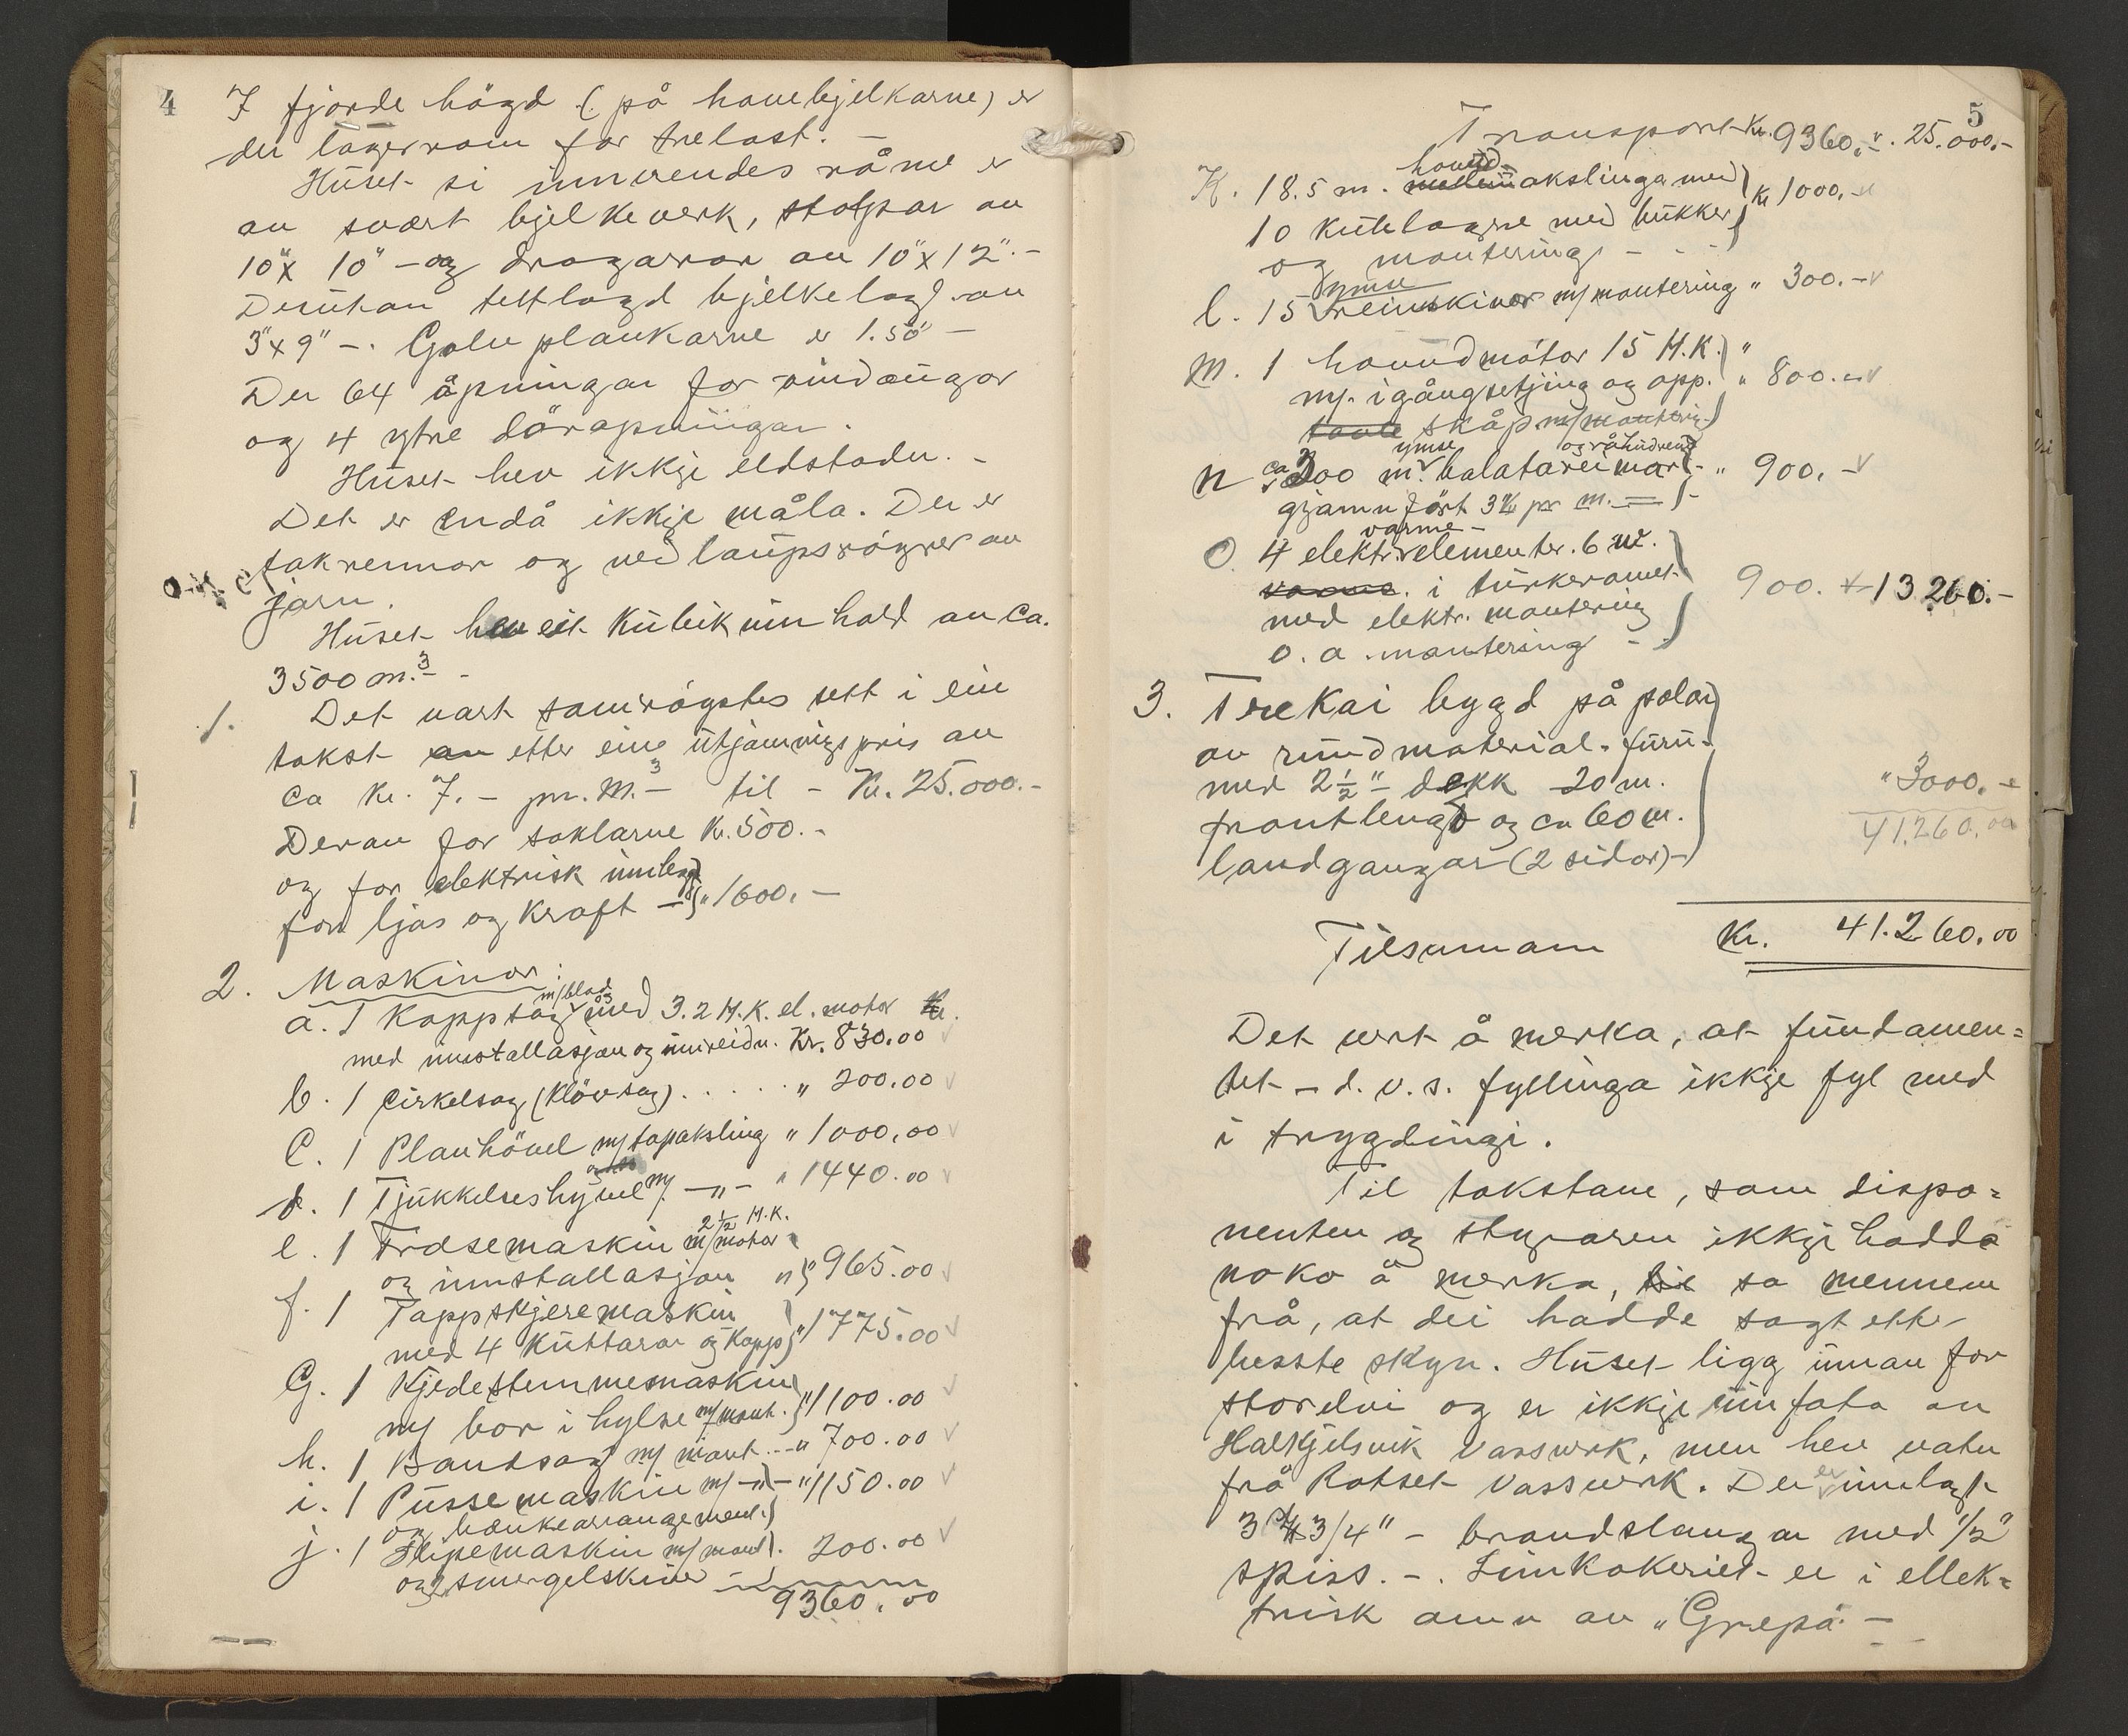 4
I fjorde högd (på hanebjelkarne) er
der lagerrom for trelast. —
Huset si innvendes råme er
av svært bjelkeverk, stolpar av
10"x 10" - og dragarar av 10"x12". -
Desutan tettlagd bjelkelag av
3"x9" -. Golvplankarne er 1.50" -
Der 64 åpningar for vindaugor
og 4 ytre döråpningar.
Huset hev ikkje eldstader. -
Det er endå ikkje måla. Der er
takrennor og nedlaupsröyrer av
jarn.
Huset hev eit kubikinnhald av ca.
3500 m.3 -
1. Det vart samröystes sett i ein
takst av etter ein utjamnings pris av
ca kr. 7. - pr. M.3 - til - Kr. 25.000.-
Derav for soklarne Kr. 500. -
og for elektrisk innlegg
for ljos og kraft - " 1600. -
2. Maskinor:
a. 1 Kappsag m/blad og med 3.2 H.K. el. motor Kr.
med installasjon og innreidn. Kr. 830.00
b. 1 Cirkelsag (Klövsag) . . . . . " 200.00
C. 1 Planhövel m/tapaksling " 1000.00
d. 1 Tjukkelseshövel m/ -"- " 1440.00
e. 1 Fræsemaskin m/motor 2½ H.K.
og innstallasjon " 965.00
f. 1 Tappskjeremaskin
med 4 Kuttarar og Kapp " 1775.00
G. 1 Kjedestemmemaskin
m/ bor i hylse m/mont. " 1100.00
h. 1 Bandsag m/ mont . . . " 700.00
i. 1 Pussemaskin m/ -"- " 1150.00
og bænkearrangement.
j. 1 Slipemaskin m/mont. 200.00
og smergelskive
9360.00
5
Transport Kr. 9360. - " 25.000.-
K. 18.5 m. hovud- mellemakslinga med kr 1000. -
10 kulelagre med bukker
og montering - - -
l. 15 ymse reimskivor m/montering " 300. -
M. 1 hovudmotor 15 H.K. "
m/. igångsetjing og opp. " 800. -
tavle skåp m/montering
n ca 300 m. ymse balatareimar og råhudreim - " 900. -
gjamnfört 3 kr pr m. =
O. 4 elektr. varme- elementer. 6 W.
varme. i turkeromet 900. + 13 260. -
med elektr. montering
o. a. montering -
3. Trekai bygd på polar
av rundmaterial. furu-
med 2½" - dekk 20 m. " 3000. -
frontlengd og ca 60 m. 41.260.00
landgangar (2 sidor) -
Tilsumam Kr. 41.260.00
Det vert å merka, at fundamen=
tet - d. v. s. fyllinga ikkje fyl med
i trygdingi.
Til takstane, som dispo=
nenten og styraren ikkje hadde
noko å merka, sa mennene
frå, at dei hadde sagt etter
beste skyn. Huset ligg innan for
storelvi og er ikkje umfata av
Halkjelsvik Vassverk, men hev vatn
frå Rotset Vassverk. Der er innlagt
3 stk 3/4" - brandslangar med 1/2"
spiss. -. Limkokeriet er i ellek=
trisk omn av "Grepa" -